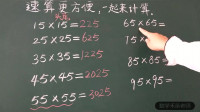 速算更方便,一起来计算。
15×15=225
25×25=625
35×35=1225
45×45=2025
55×55=3025
65×65=
75×
85×85=
95×95=